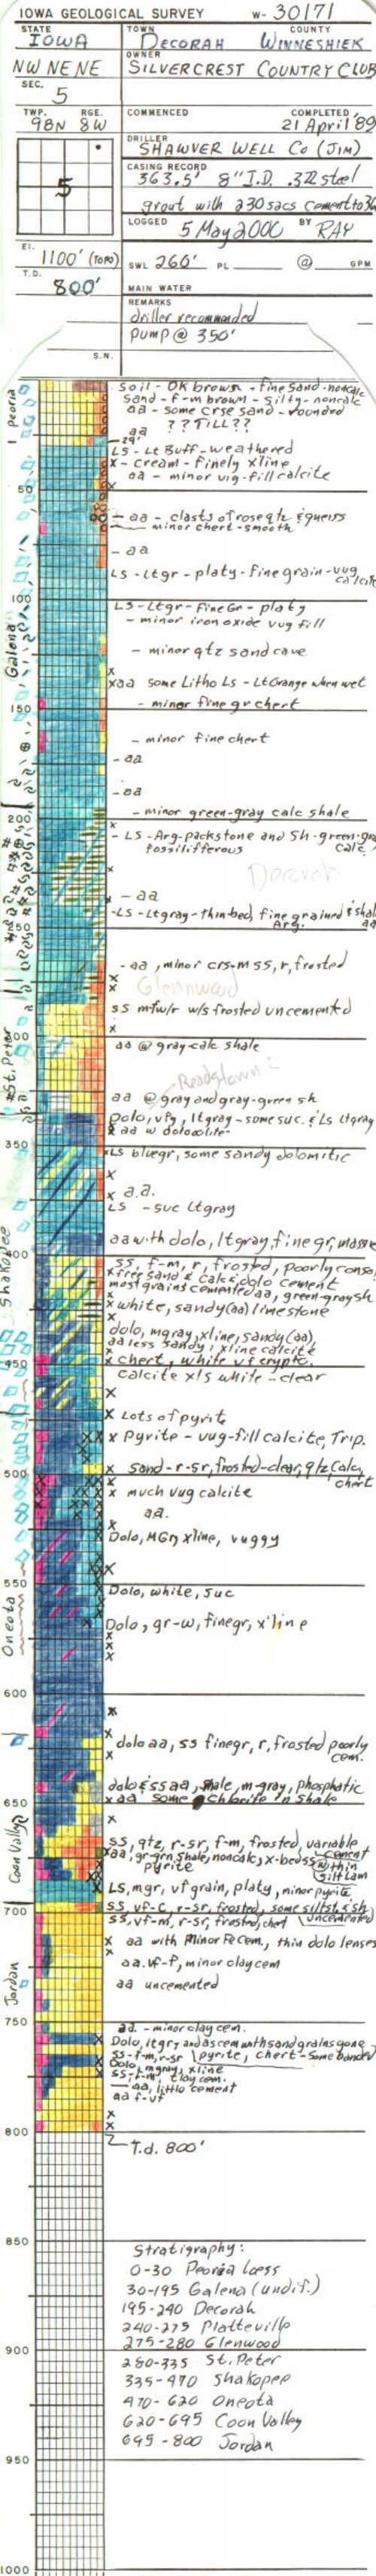 IOWA GEOLOGICAL SURVEY W- 30171
STATE TOWN COUNTY
IOWA DECORAH WINNESHIEK
OWNER
NW NE NE SILVERCREST COUNTRY CLUB
SEC.
5
TWP. RGE. COMMENCED COMPLETED
98N 8W 21 April '89
DRILLER
SHAWVER WELL Co (JIM)
CASING RECORD
5 363.5' 8" I.D. .322 steel
grout with 230 sacs cement to
LOGGED 5 May 2000 BY RAY
El. 1100' (TOPO)
SWL 260' PL @ GPM
T.D. 800'
MAIN WATER
REMARKS
driller recommended
pump @ 350'
S.N.
Peoria
Soil - DK brown - fine sand - noncalc
Sand - f-m brown - silty - noncalc
aa - some crse sand - rounded
aa ??TILL??
29'
LS - Lt Buff - weathered
x - cream - finely xline
aa - minor vug-fill calcite
50
- aa - clasts of rose qtz & gneiss
minor chert - smooth
- aa
LS - Ltgr - platy - fine grain - vug calcite
100
LS - Ltgr - Fine Gr - platy
- minor iron oxide vug fill
Galena
- minor qtz sand cave
x aa some Litho Ls - Lt Orange when wet
150
- minor fine gr chert
- minor fine chert
- aa
- aa
- minor green-gray calc shale
200
- LS - Arg - packstone and Sh - green-gra
fossilifferous calc.
Decorah
- aa
- LS - Ltgray - thin bed, fine grained & shal
Arg. aa
250
- aa, minor crs-m ss, r, frosted
Glennwood
SS m-f w/r w/s frosted uncemented
300
aa @ gray-calc shale
St. Peter
Readstown
aa @ gray and gray-green sh
Dolo, vfg, ltgray - some suc. & Ls ltgray
x aa w dolo oolite
350
x LS bluegr, some sandy dolomitic
x a.a.
LS - suc ltgray
aa with dolo, ltgray, fine gr, massive
400
Shakopee
SS, f-m, r, frosted, poorly conso,
x free sand & calc & dolo cement
most grains cemented aa, green-gray sh
x white, sandy (aa) limestone
dolo, mgray, xline, sandy (aa),
aa less sandy, xline calcite
x chert, white vf crypto.
450
Calcite xls white - clear
x Lots of pyrite
x Pyrite - vug-fill calcite, Trip.
x Sand - r-sr, frosted - clear, qtz, calc,
chert
500
x much vug calcite
aa.
Dolo, MGry xline, vuggy
550
Dolo, white, suc
Oneota
Dolo, gr-w, finegr, x'line
600
x dolo aa, ss finegr, r, frosted poorly
cem.
dolo & ss aa, shale, m-gray, phosphatic
650
x aa some Chlorite in shale
Coon Valley
SS, qtz, r-sr, f-m, frosted, variable
cement
x aa, gr-grn shale, noncalc, x-beds @ thin
pyrite silt lam
LS, mgr, vf grain, platy, minor pyrite
SS, vf-c, r-sr, frosted, some siltst, & sh
700
SS, vf-m, r-sr, frosted, chert uncemented
x aa with Minor Fe Cem., thin dolo lenses
Jordan
aa. vf-f, minor clay cem
aa uncemented
750
aa. - minor clay cem.
Dolo, ltgry and as cem with sand grains gone
SS - f-m, r-sr pyrite, chert - some banded
Dolo, mgray, xline
SS, f-m, clay cem.
- aa, little cement
aa f-vf
800
T.d. 800'
850
Stratigraphy:
0-30 Peoria Loess
30-195 Galena (undif.)
195-240 Decorah
240-275 Platteville
900
275-280 Glenwood
280-335 St. Peter
335-470 Shakopee
470-620 Oneota
620-695 Coon Valley
695-800 Jordan
950
1000